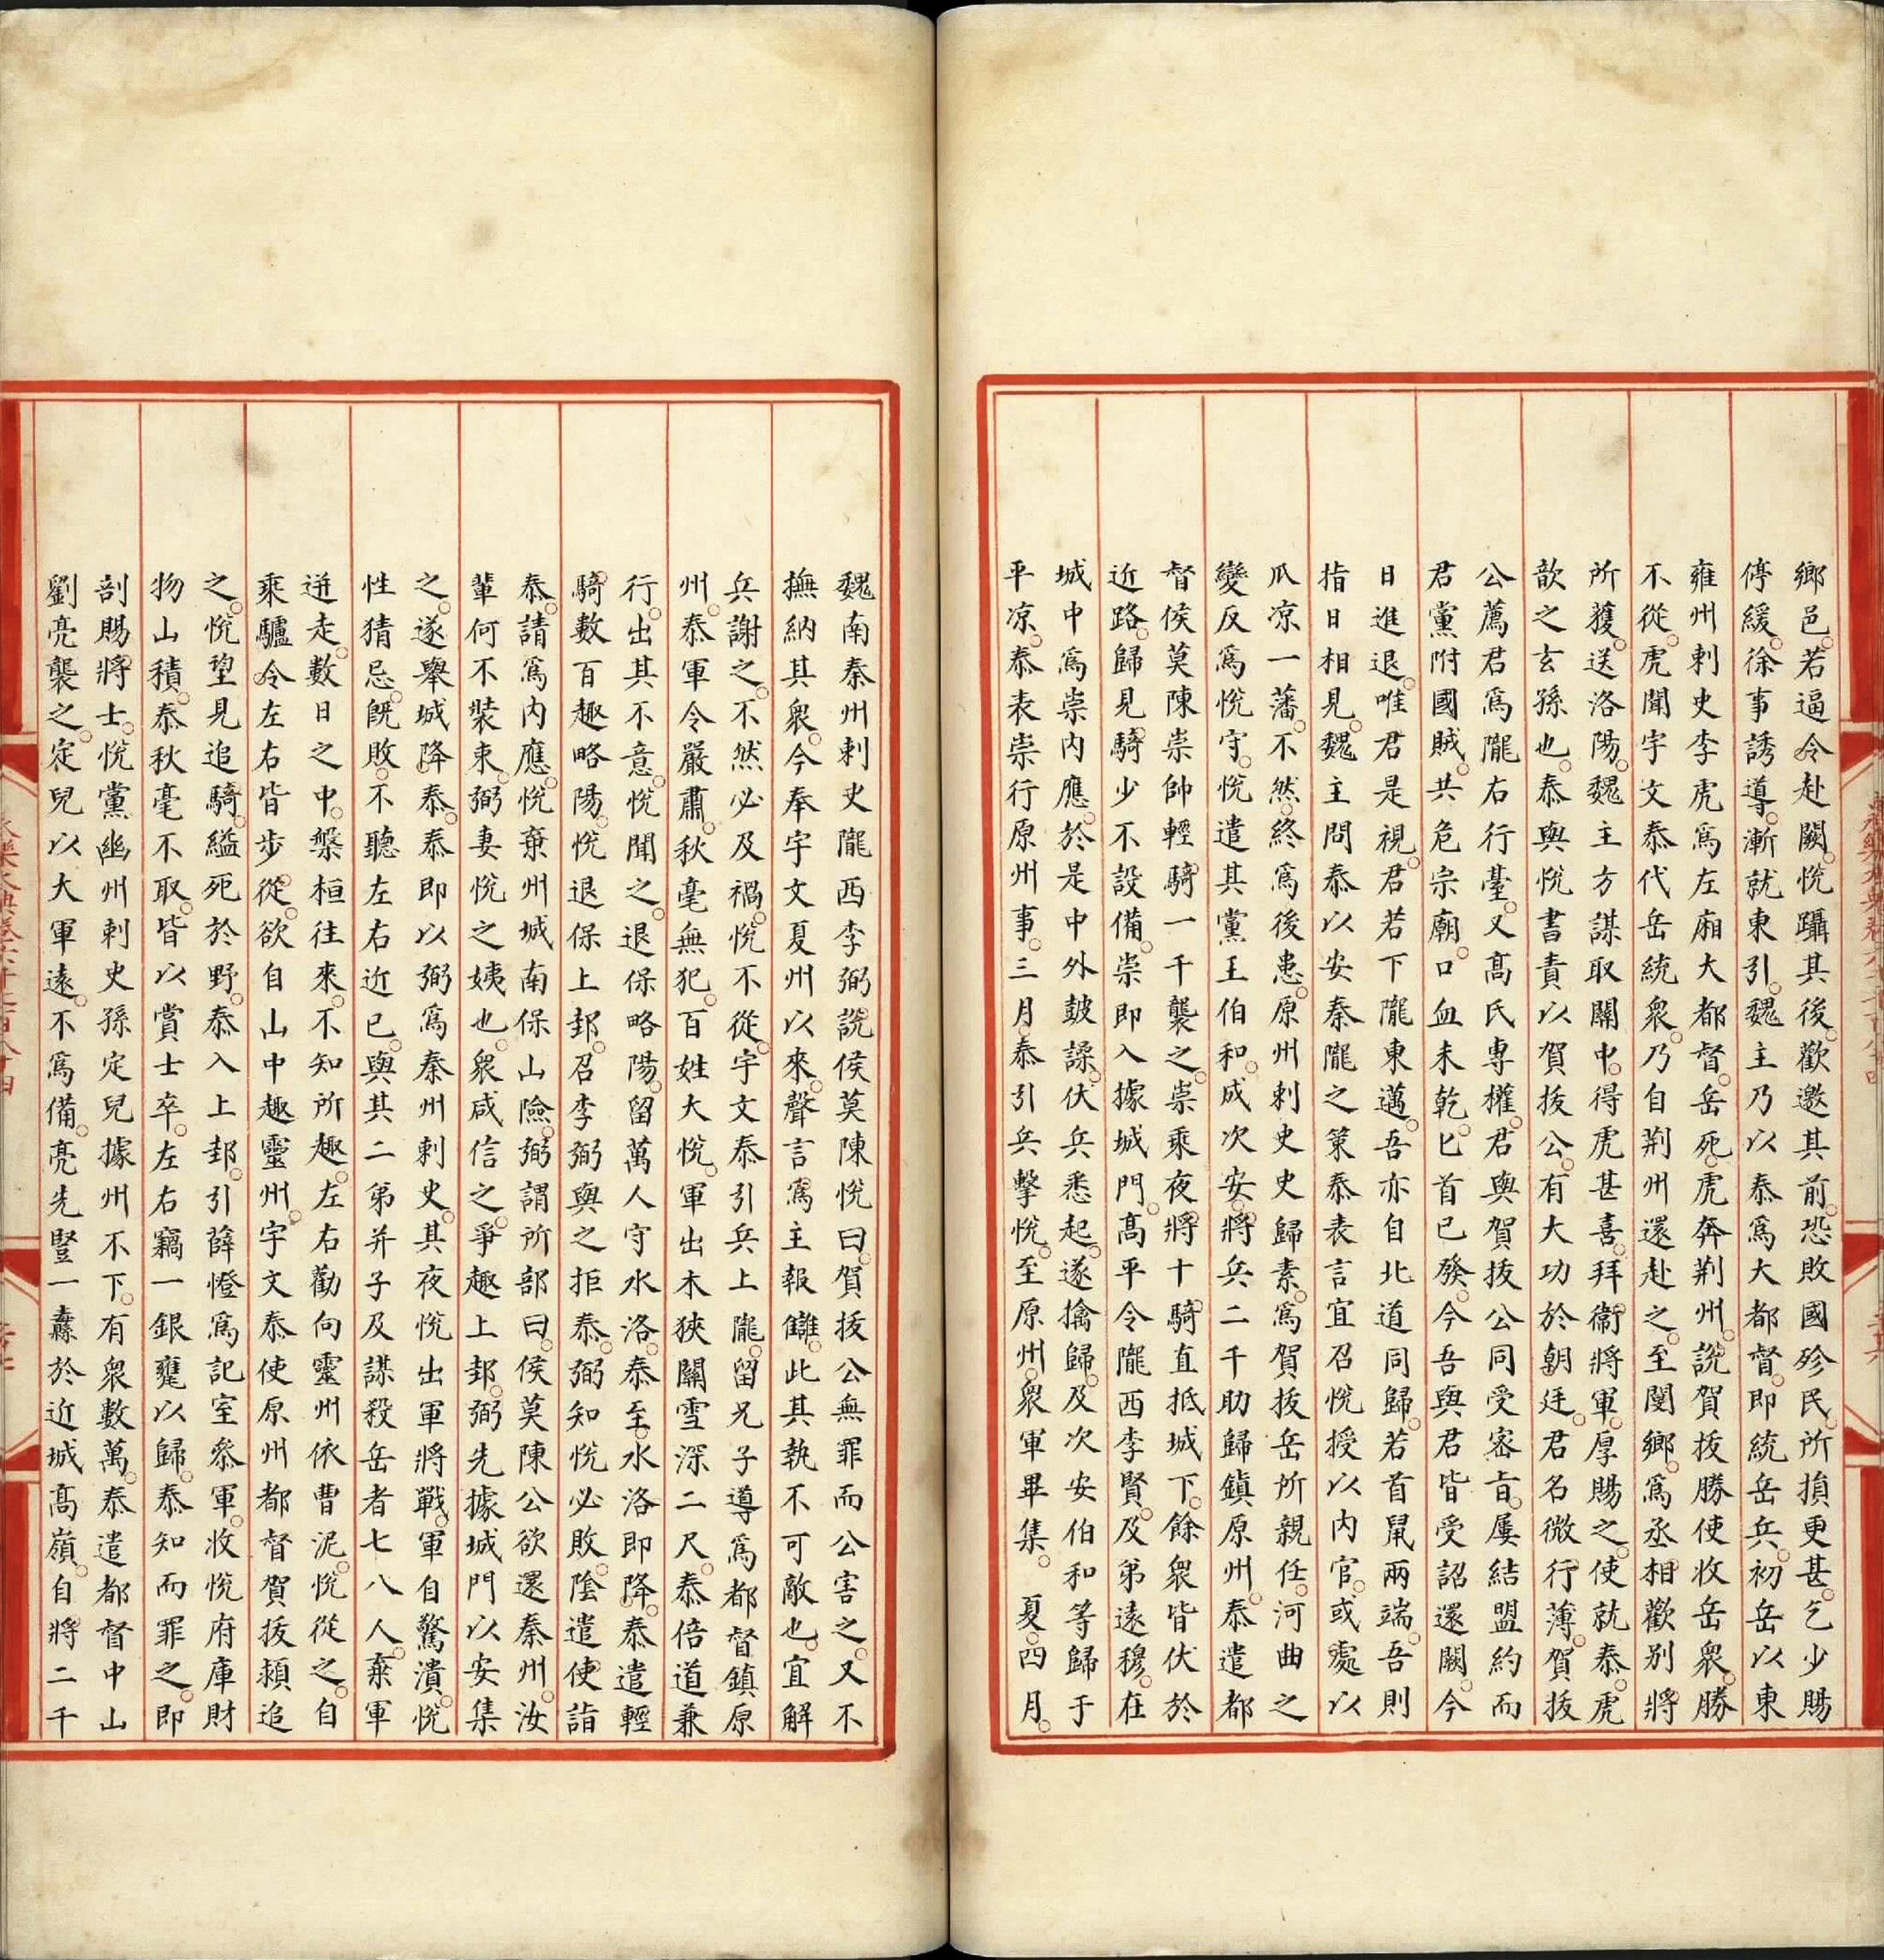 鄉邑。若逼令赴闕。悅躡其後。歡邀其前。恐敗國殄民。所損更甚。乞少賜
停緩。徐事誘導。漸就東引。魏主乃以泰爲大都督。即統岳兵。初岳以東
雍州刺史李虎爲左廂大都督。岳死。虎奔荆州。說賀拔勝使收岳衆。勝
不從。虎聞宇文泰代岳統衆。乃自荆州還赴之。至閿鄉。爲丞相歡别將
所獲。送洛陽。魏主方謀取關中。得虎甚喜。拜衛將軍。厚賜之。使就泰。虎
歆之玄孫也。泰與悅書責以賀拔公。有大功於朝廷。君名微行薄。賀拔
公薦君爲隴右行臺。又髙氏專權。君與賀拔公同受密旨。屢結盟約。而
君黨附國賊。共危宗廟。口血未乾。匕首已發。今吾與君皆受詔還闕。今
日進退。唯君是視。君若下隴東邁。吾亦自北道同歸。若首鼠兩端。吾則
指日相見。魏主問泰以安秦隴之策。泰表言宜召悅授以内官。或處以
瓜凉一藩。不然。終爲後患。原州刺史史歸素。爲賀拔岳所親任。河曲之
變反爲悅守。悅遣其黨王伯和。成次安。將兵二千助歸鎮原州。泰遣都
督侯莫陳崇帥輕騎一千襲之。崇乘夜將十騎直抵城下。餘衆皆伏於
近路。歸見騎少不設備。崇即入據城門。髙平令隴西李賢。及弟遠穆。在
城中爲崇内應。於是中外皷譟。伏兵悉起。遂擒歸。及次安伯和等歸于
平凉。泰表崇行原州事。三月。泰引兵擊悅。至原州。衆軍畢集。　夏。四月。
魏南秦州刺史隴西李弼說侯莫陳悅曰。賀拔公無罪而公害之。又不
撫納其衆。今奉宇文夏州以來。聲言爲主報讎。此其執不可敵也。宜解
兵謝之。不然必及禍。悅不從。宇文泰引兵上隴。留兄子導爲都督鎮原
州。泰軍令嚴肅。秋毫無犯。百姓大悅。軍出木狹關雪深二尺。泰倍道兼
行。出其不意。悅聞之。退保略陽。留萬人守水洛。泰至。水洛即降。泰遣輕
騎數百趣略陽。悅退保上邽。召李弼與之拒泰。弼知悅必敗。陰遣使詣
泰。請爲内應。悅棄州城南保山險。弼謂所部曰。侯莫陳公欲還秦州。汝
輩何不裝束。弼妻悅之姨也。衆咸信之。爭趣上邽。弼先據城門以安集
之。遂舉城降泰。泰即以弼爲秦州刺史。其夜悅出軍將戰。軍自驚潰。悅
性猜忌。旣敗。不聽左右近已。與其二弟并子及謀殺岳者七八人。棄軍
迸走。數日之中。槃桓往來。不知所趣。左右勸向靈州依曹泥。悅從之。自
乘驢令左右皆步從。欲自山中趣靈州。宇文泰使原州都督賀拔熲追
之。悅望見追騎。縊死於野。泰入上邽。引薛憕爲記室參軍。收悅府庫財
物山積。泰秋毫不取。皆以賞士卒。左右竊一銀甕以歸。泰知而罪之。即
剖賜將士。悅黨豳州刺史孫定兒據州不下。有衆數萬。泰遣都督中山
劉亮襲之。定兒以大軍遠。不爲備。亮先豎一纛於近城髙嶺。自將二千